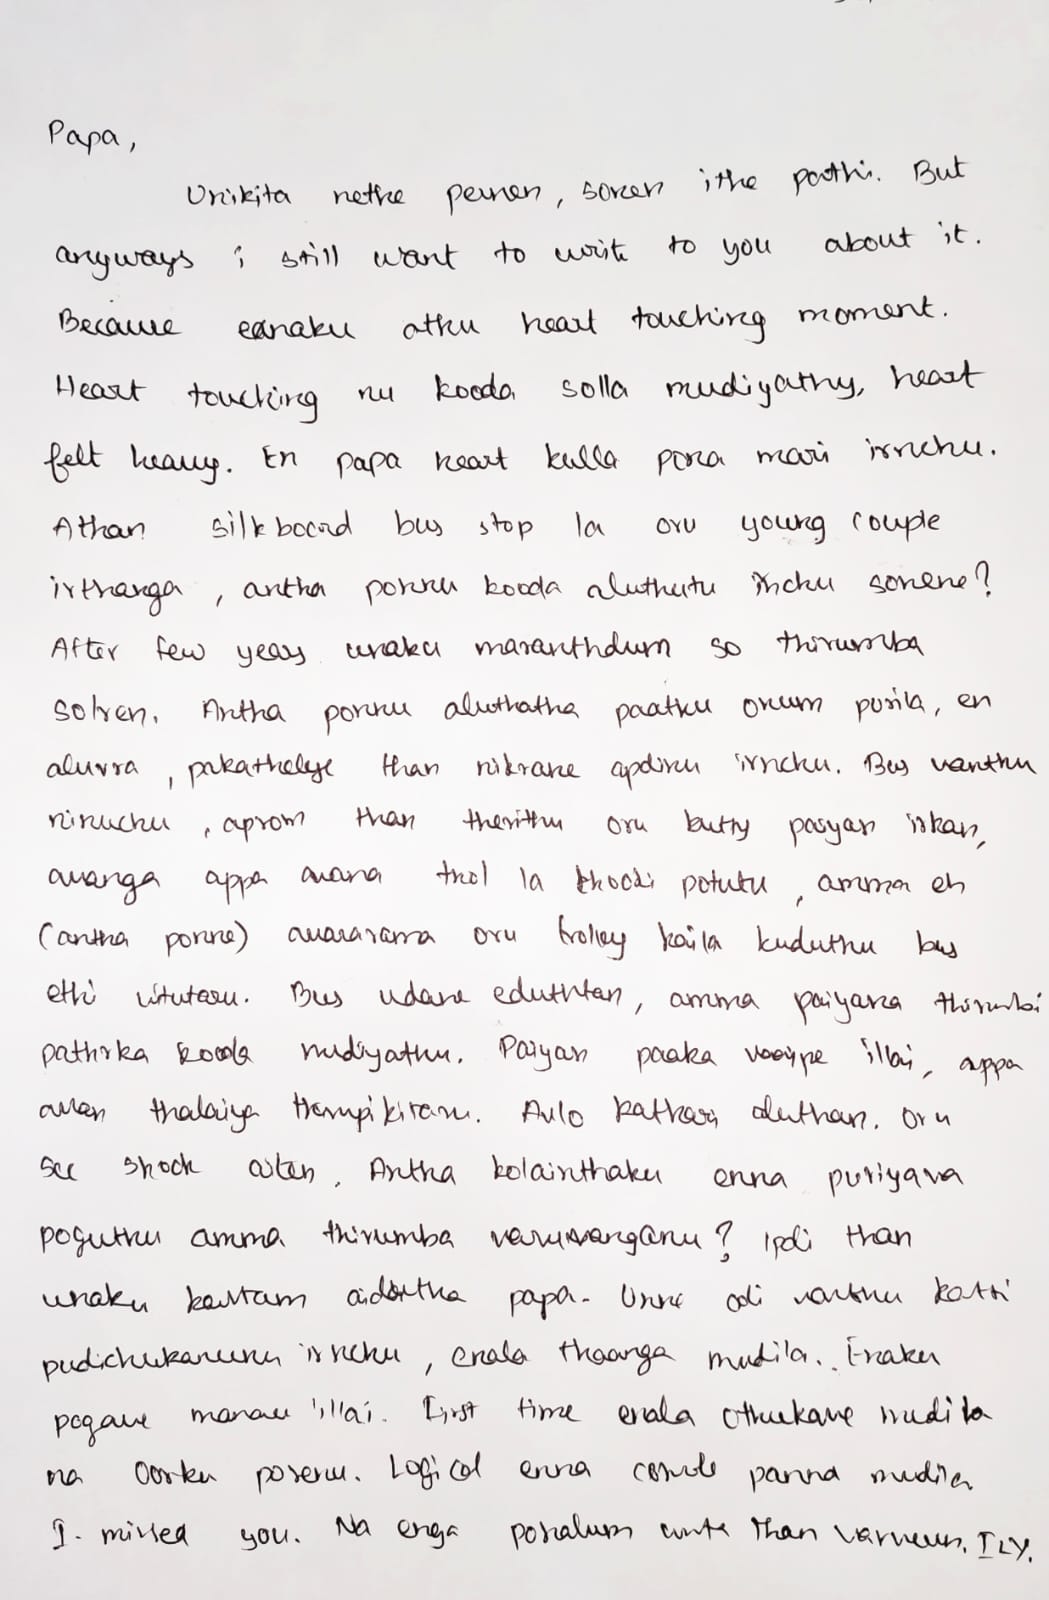 Papa,
Unikita nethe pesnen, sonen ithe pathi. But
anyways i still want to write to you about it.
Because eanaku athu heart touching moment.
Heart touching nu kooda solla mudiyathu, heart
felt heavy. En papa heart kulla pona mari irnchu.
Athan silkboard bus stop la oru young couple
irthanga, antha ponnu kooda aluthutu irnchu sonene?
After few years unaku maranthdum so thirumba
solren. Antha ponnu aluthatha paathu onum purila, en
aluvra, pakathelye than nikrane apdinu irnchu. Bus vanthu
ninuchu, aprom than therithu oru butty paiyan irkan,
avanga appa avana thol la thooki potutu, amma eh
(antha ponne) avasarama oru trolley kaila kuduthu bus
ethi vitutaru. Bus udane eduthtan, amma paiyana thirumbi
pathrka kooda mudiyathu. Paiyan paaka vaaipe illai, appa
avan thalaiya thirupikiraru. Avlo kathari aluthan. Oru
sec shock aiten. Antha kolainthaku enna puriyava
poguthu amma thirumba varuvanganu? Ipdi than
unaku kastam aidrtha papa. Unne odi vanthu katti
pudichukanumnu irnchu, enala thaanga mudila. Enaku
pogave manau illai. First time enala othukave mudila
na Oorku porenu. Logical enna console panna mudila
I missed you. Na enga ponalum unta than varuven. ILY.